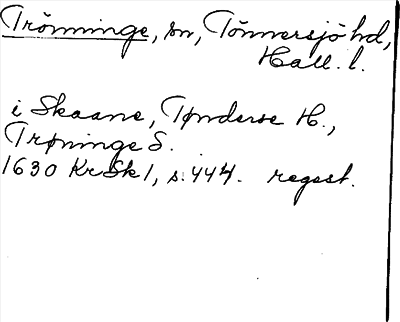 Trönninge, sn, Tönnersjö hd,
Hall. l.
i Skaane, Tønderse H.,
Trøninge S.
1630 KrSk 1, s. 444. regest.